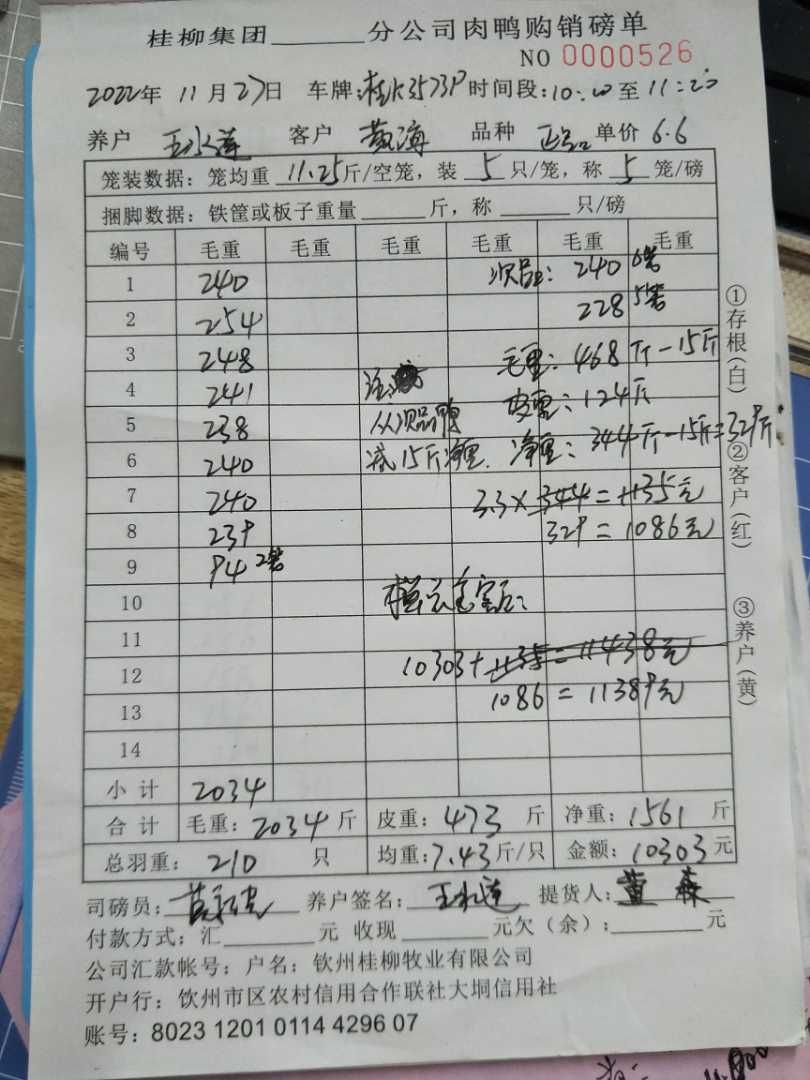 桂柳集团______分公司肉鸭购销磅单
NO 0000526
2022年 11月27日 车牌:桂K3573P 时间段:10:20至11:20
养户 王永莲 客户 黄海 品种 正品 单价 6.6
笼装数据:笼均重 11.25斤/空笼,装 5 只/笼,称 5 笼/磅
捆脚数据:铁筐或板子重量______斤,称______只/磅
编号 毛重 毛重 毛重 毛重 毛重 毛重
1 240 次品: 240 6笼
2 254 228 5笼
3 248 毛重: 468斤-15斤
4 241 皮重: 124斤
5 238 从次品鸭
6 240 减15斤净重. 净重: 344斤-15斤=329斤
7 240 3.3×344=1135元
8 239 329=1086元
9 94 2笼
10
11 10303+1135=11438元
12 1086=11389元
13
14
小计 2034
合计 毛重:2034斤 皮重:473斤 净重:1561斤
总羽重:210只 均重:7.43斤/只 金额:10303元
司磅员: 养户签名:王永莲 提货人:黄森
付款方式:汇______元 收现______元欠(余):______元
公司汇款帐号:户名:钦州桂柳牧业有限公司
开户行:钦州市区农村信用合作联社大垌信用社
账号:8023 1201 0114 4296 07
①存根(白)
②客户(红)
③养户(黄)